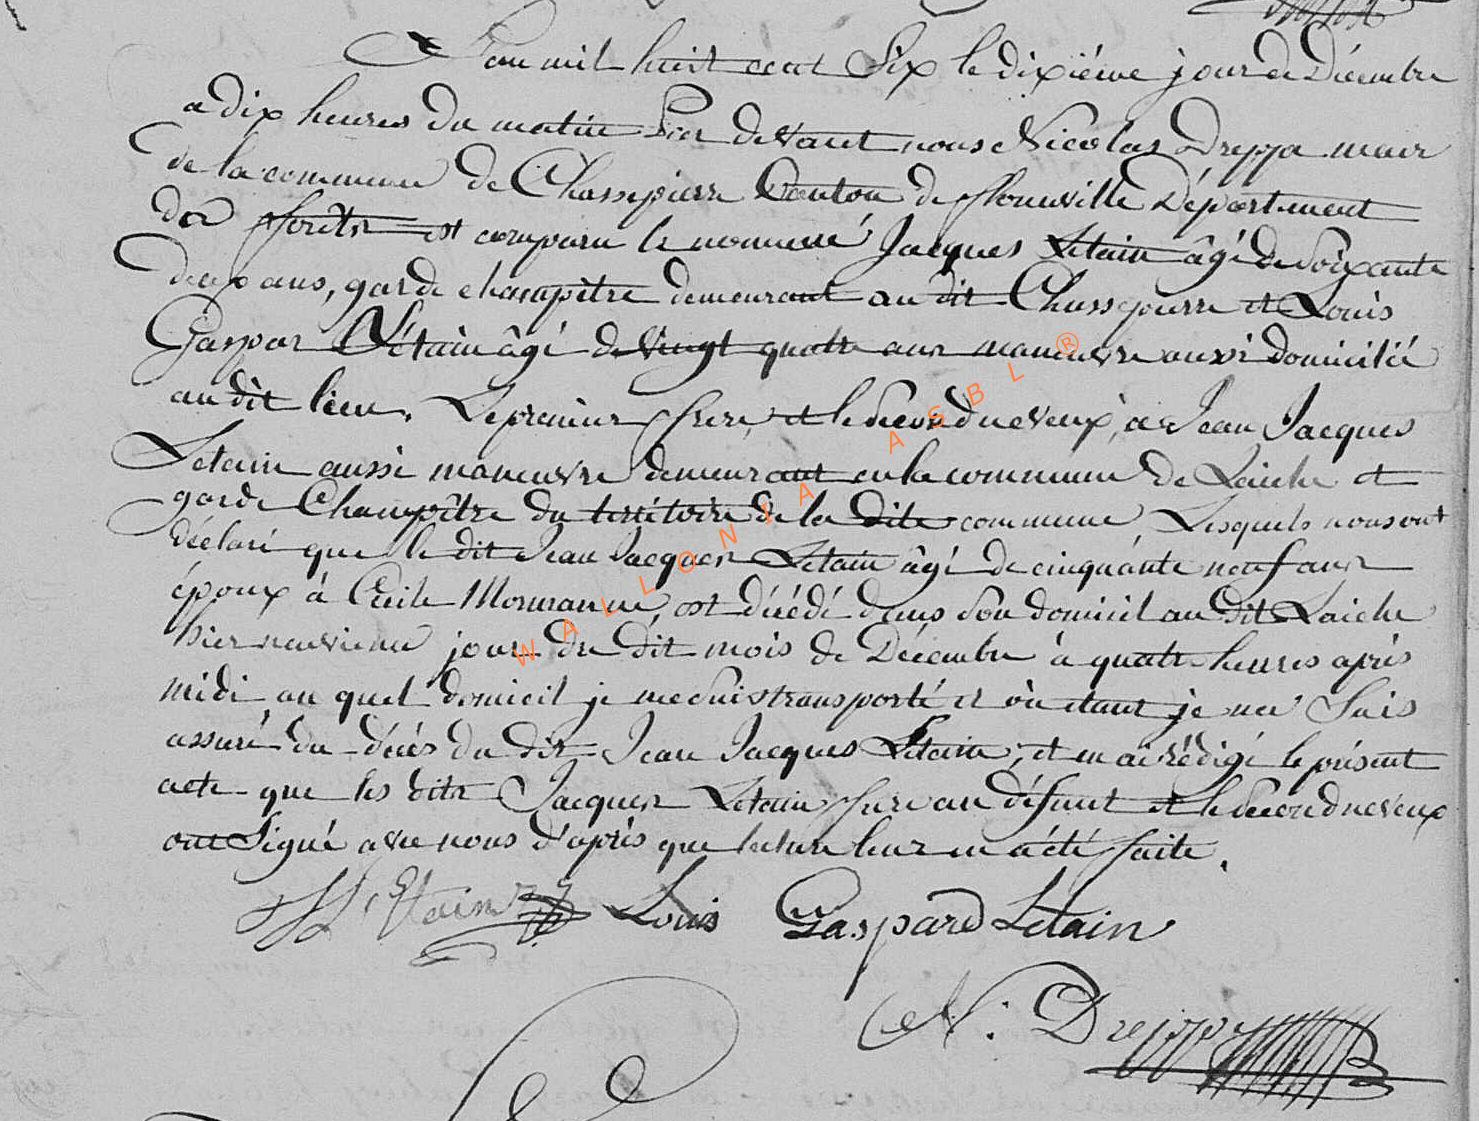 L'an mil huit cent Six le dixiéme jour de Décembre
a dix heures du matin Par devant nous Nicolas Dreppe maire
de la commune de Chassepierre Canton de florenville Département
des forêts est comparu le nommé Jacques Letain âgé de Soixante
deux ans, garde champêtre demeurant au dit Chassepierre et Louis
Gaspar Létain âgé de vingt quatre ans manœuvre aussi domicilié
au dit lieu. Le premier frere, et le second neveux, a Jean Jacques
Letain aussi manœuvre demeurant en la commune de Laiche et
garde Champêtre du territoire de la dite commune Lesquels nous ont
déclaré que le dit Jean Jacques Letain âgé de cinquante neuf ans
époux à Cecile Mormanne, est décédé dans son domicil au dit Laiche
hier neuvieme jour du dit mois de Décembre à quatre heures après
midi au quel domicil je me suis transporté et où étant je me Suis
assuré du décés du dit Jean Jacques Letain, et en ai rédigé le présent
acte que les dits Jacques Letain frere au défunt et le second neveux
ont Signé avec nous d'après que lecture leur en a été faite.
Letain Louis Gaspard Letain
N: Dreppe
WALLONIA ASBL ®